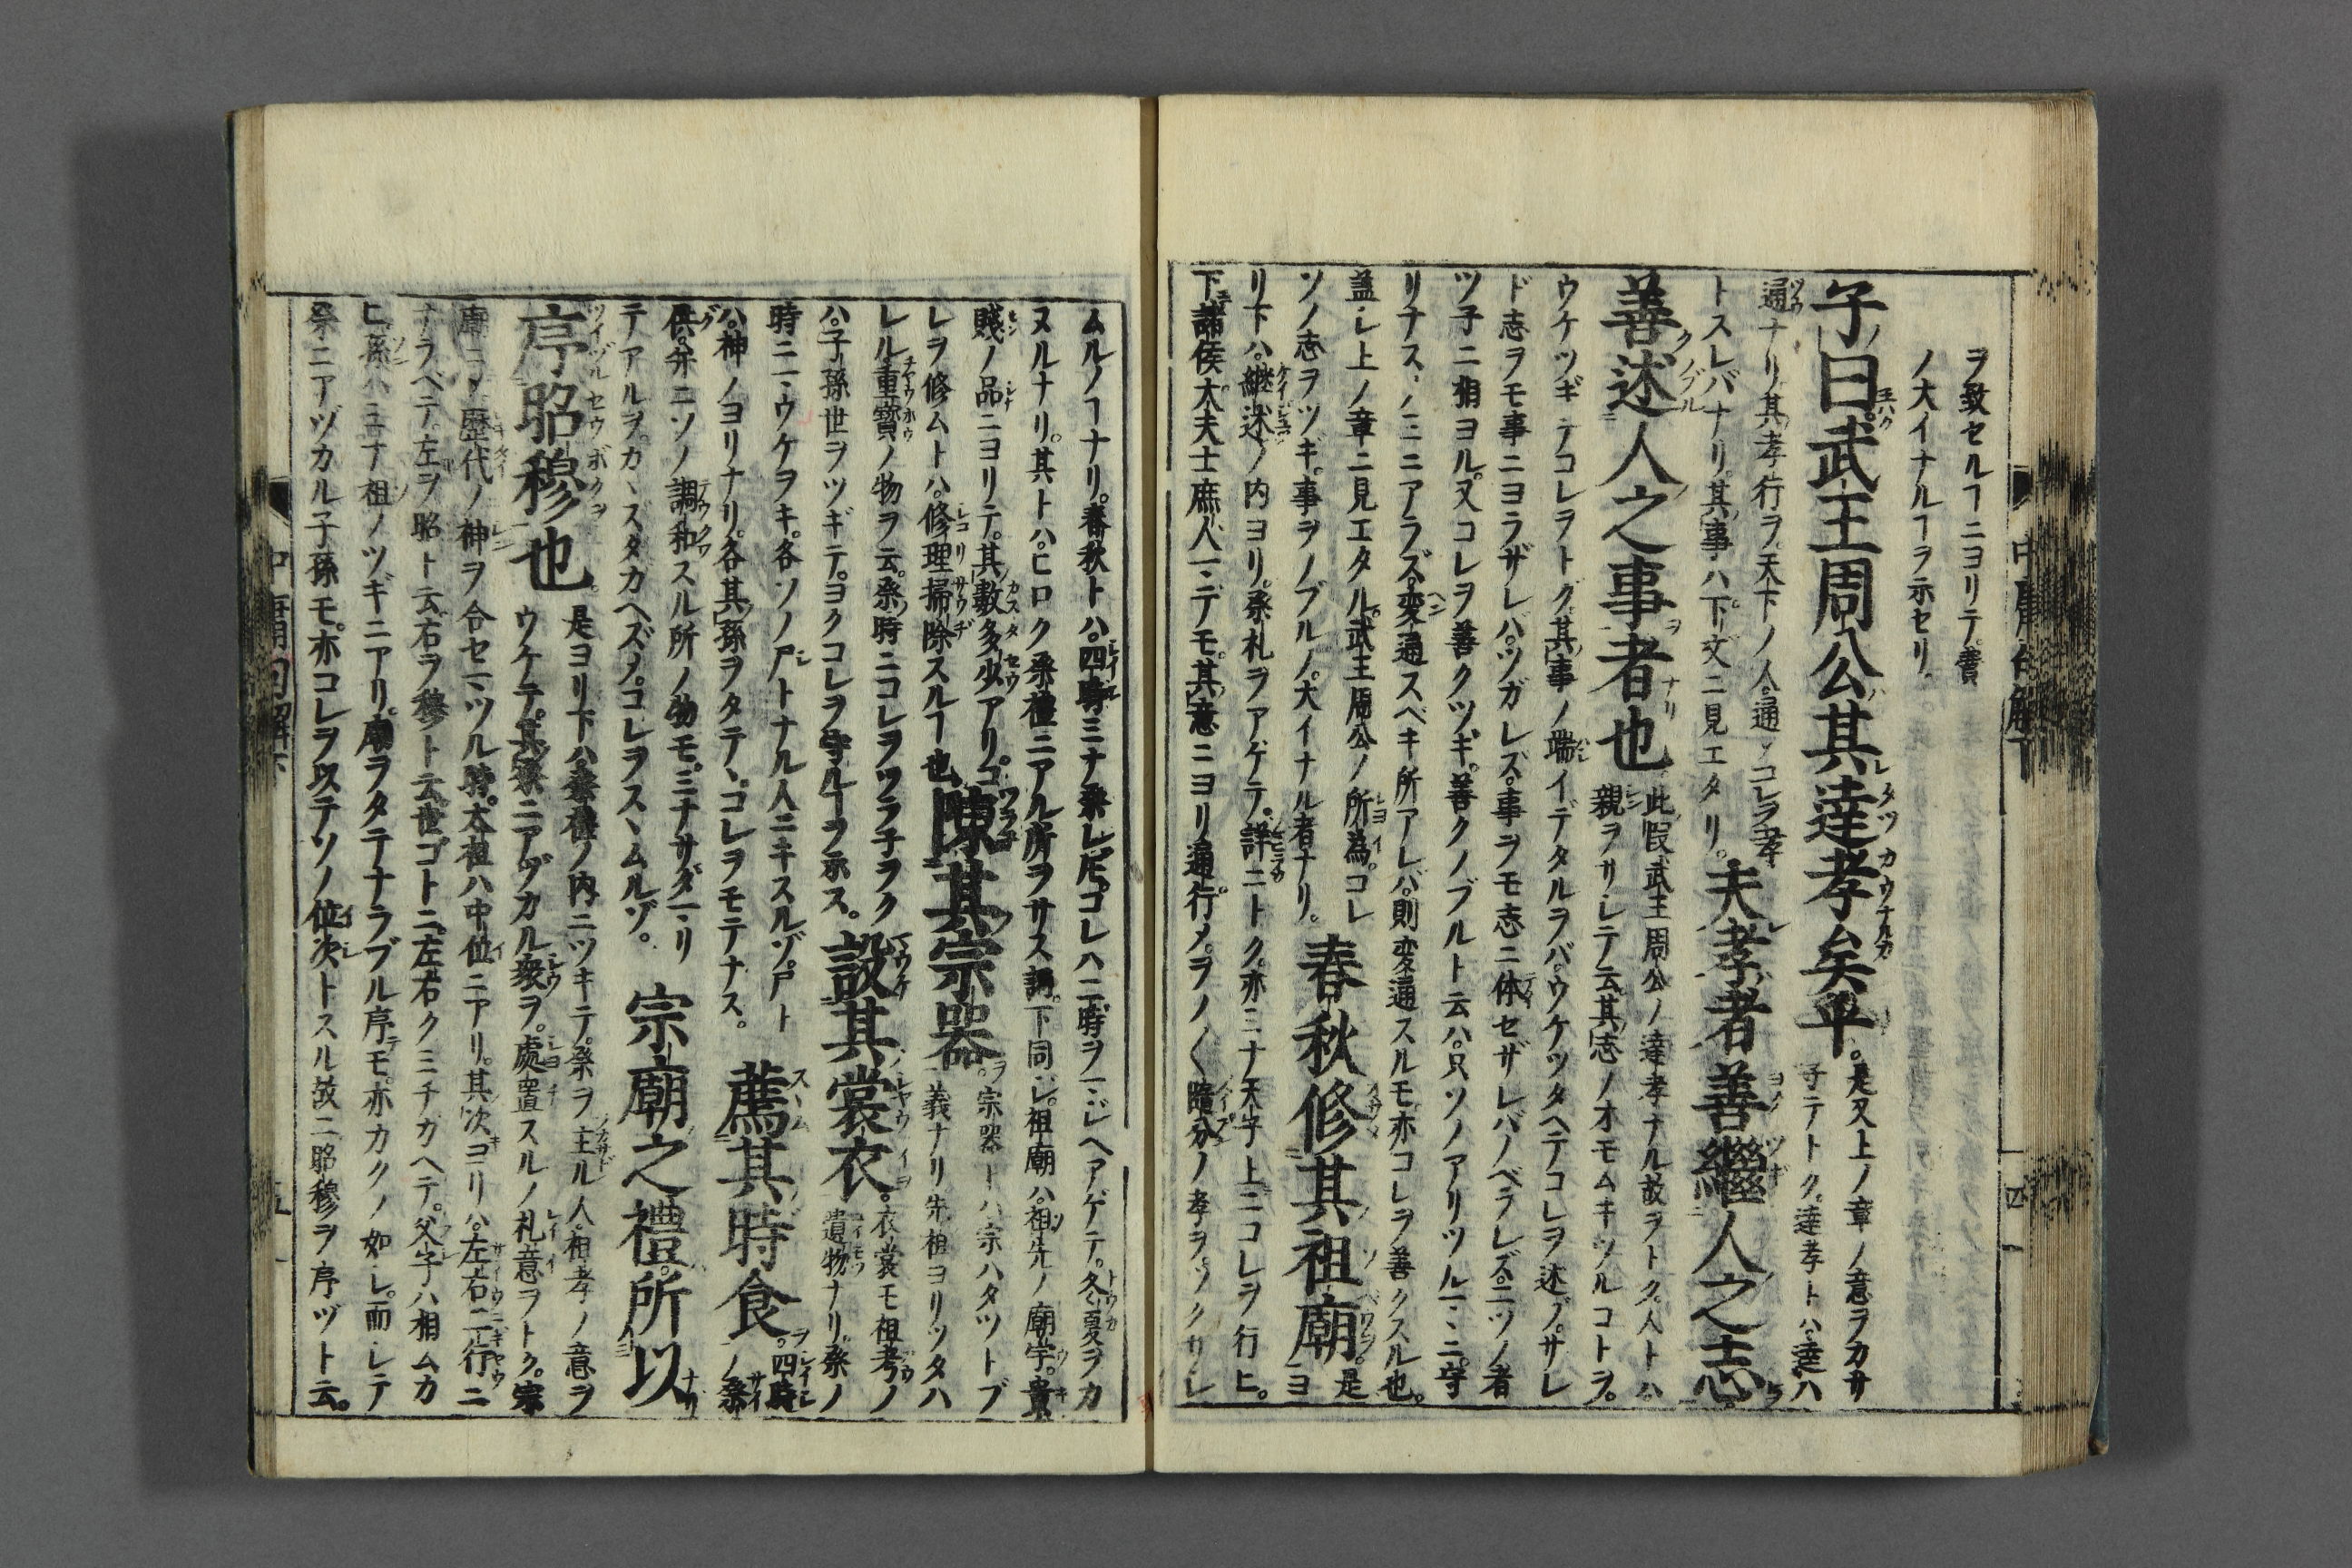 ヲ致セルヿニヨリテ費
ノ大イナルヿヲ示セリ
子曰武王周公其達孝矣乎。是又上ノ章ノ意ヲカサ
子テトク。達孝トハ達ハ
通ナリ。其孝行ヲ。天下ノ人。通メコレヲ孝
トスレバナリ。其事ハ下ノ文ニ見エタリ。夫孝者善繼人之志
善述人之事者也 此段武王周公ノ達孝ナル故ヲトク。人トハ
親ヲサレテ云。其志ノオモムキツルコトヲ。
ウケツギテコレヲトグ。其事ノ端イデタルヲバ。ウケツタヘテコレヲ述ブ。サレ
ド志ヲモ事ニヨラザレバ。ツガレズ。事ヲモ志ニ体セザレバノベラレズ。二ツノ者
ツ子ニ相ヨル。又コレヲ善クツギ。善クノブルト云ハ。只ソノアリツルヿヽニ守
リナスヽノミニアラズ。変通スベキ所アレバ。則変通スルモ亦コレヲ善クスル也。
蓋シ上ノ章ニ見エタル。武王周公ノ所為。コレ
ソノ志ヲツギ。事ヲノブルノ。大イナル者ナリ。春秋修其祖廟。是ヨ
リ下ハ。繼述ノ内ヨリ。祭礼ヲアゲテ。詳ニトク。亦ミナ天子上ニコレヲ行ヒ。
下諸侯大夫士庶人ニデモ。其意ニヨリ通行メ。ヲノ〱隨分ノ孝ヲ。ソクサレ
中庸句解下 四
ムルノヿナリ。春秋トハ。四時ミナ祭レ𪜈。コレハ二時ヲヿジヘアゲテ。冬夏ヲカ
ヌルナリ。其トハ。ヒロク祭禮ニアル所ヲサス詞。下同シ。祖廟ハ。祖先ノ廟宇。貴
賤ノ品ニヨリテ。其數多少アリ。コ
レヲ修ムトハ。修理掃除スルヿ也。陳其宗器。宗器トハ宗ハタツトブ
義ナリ先祖ヨリツタハ
レル重寳ノ物ヲ云。祭ノ時ニコレヲツラ子ヲク
ハ。子孫世ヲツギテ。ヨクコレヲ守ルヿヲ示ス。設其裳衣。衣裳モ祖考ノ
遺物ナリ。祭ノ
時ニヽウケヲキ。各ソノ尸トナル人ニキスルゾ。尸ト
ハ。神ノヨリナリ。各其孫ヲタテヽ。コレヲモテナス。薦其時食。四時
ノ祭
供。并ニソノ調和スル所ノ物モ。ミナサダヿリ
テアルヲ。カヽズタガヘズメ。コレヲスヽムルゾ。宗廟之禮所以
序昭穆也。是ヨリ下ハ。祭禮ノ内ニツキテ。祭ヲ主ル人。祖孝ノ意ヲ
ウケテ。其祭ニアヅカル衆ヲ。處置スルノ礼意ヲトク。宗
廟ニメ歷代ノ神ヲ合セヿツル時。太祖ハ中位ニアリ。其次ヨリハ。左右二行ニ
ナラベテ。左ヲ昭ト云。右ヲ穆ト云。世ゴトニ左右クミチガヘテ。父子ハ相ムカ
ヒ。孫ハミナ祖ノツギニアリ。廟ヲタテナラブル序モ。亦カクノ如シ。而シテ
祭ニアヅカル子孫モ。亦コレヲ以テソノ位次トスル故ニ昭穆ヲ序ヅト云。
中庸句解下 五